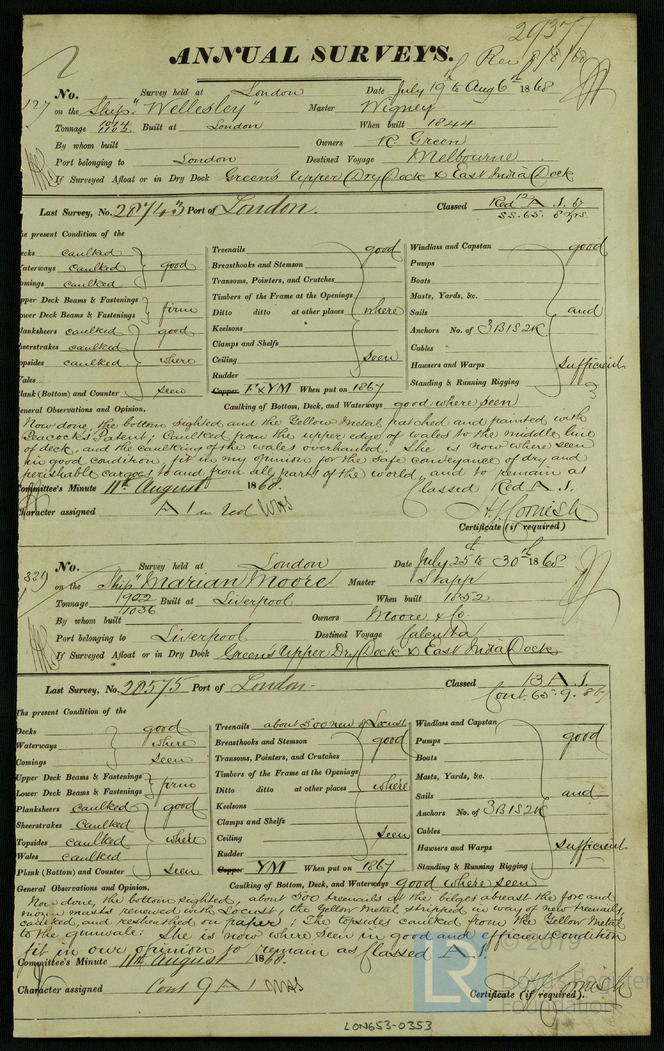 29377
ANNUAL SURVEYS.
Rec 8/8/68
No. Survey held at London Date July 19 to Aug 6th 1868
127 on the Ship "Wellesley" Master Wigney
Tonnage 1014 1102 Built at London When built 1844
By whom built Owners R Green
Port belonging to London Destined Voyage Melbourne
If Surveyed Afloat or in Dry Dock Green's Upper Dry Dock & East India Dock
Last Survey, No. 28743 Port of London. Classed Red 12 A.1. 67
SS. 65. 8 yrs.
he present Condition of the
ecks caulked
aterways caulked good
omings caulked
pper Deck Beams & Fastenings
ower Deck Beams & Fastenings firm
lanksheers caulked good
heerstrakes caulked
opsides caulked where
ales
lank (Bottom) and Counter seen
Treenails good
Breasthooks and Stemson
Transoms, Pointers, and Crutches
Timbers of the Frame at the Openings
Ditto ditto at other places where
Keelsons
Clamps and Shelfs
Ceiling seen
Rudder
Copper F & YM When put on 1867
Windlass and Capstan good
Pumps
Boats
Masts, Yards, &c.
Sails and
Anchors No. of 3B 1S 2K
Cables
Hawsers and Warps sufficient
Standing & Running Rigging
Caulking of Bottom, Deck, and Waterways good where seen
eneral Observations and Opinion,
Now done, the bottom sighted and the Yellow Metal patched and painted with
Peacocks Patent; Caulked from the upper edge of wales to the middle line
of deck, and the caulking of the wales overhauled. She is now where seen
in good condition, fit in my opinion for the safe conveyance of dry and
perishable cargoes to and from all parts of the world, and to remain as
Classed Red A.1.
ommittee's Minute 11th August 1868.
haracter assigned A 1 in red
H J Cornish
Certificate (if required)
No. Survey held at London Date July 25 to 30th 1868
329 on the Ship "Marian Moore Master Shapp
Tonnage 902 1036 Built at Liverpool When built 1852
By whom built Owners Moore & Co.
Port belonging to Liverpool Destined Voyage Calcutta
If Surveyed Afloat or in Dry Dock Green's Upper Dry Dock & East India Dock
Last Survey, No. 28575 Port of London Classed 13 A.1.
Cont. 65. 9. 867
The present Condition of the
Decks good
Waterways where
Comings seen
Upper Deck Beams & Fastenings
Lower Deck Beams & Fastenings firm
Planksheers caulked good
Sheerstrakes caulked
Topsides caulked where
Wales caulked
Plank (Bottom) and Counter seen
Treenails about 500 new of Locust
Breasthooks and Stemson good
Transoms, Pointers, and Crutches
Timbers of the Frame at the Openings
Ditto ditto at other places where
Keelsons
Clamps and Shelfs
Ceiling seen
Rudder
Copper YM When put on 1867
Windlass and Capstan
Pumps good
Boats
Masts, Yards, &c.
Sails and
Anchors No. of 3B 1S 2K
Cables
Hawsers and Warps sufficient
Standing & Running Rigging
Caulking of Bottom, Deck, and Waterways good where seen
General Observations and Opinion,
Now done, the bottom sighted, about 500 treenails at the belges abreast the fore and
main masts renewed with Locust, the Yellow Metal stripped in way of new treenails,
caulked, and resheathed on paper; The topsides caulked from the Yellow Metal
to the gunwale: She is now where seen in good and efficient condition
fit in our opinion to remain as Classed A.1.
Committee's Minute 11th August 1868.
Character assigned Cont 9 A 1
H J Cornish
Certificate (if required).
© 2019
LR
Lloyd's Register
Foundation
LON653-0353